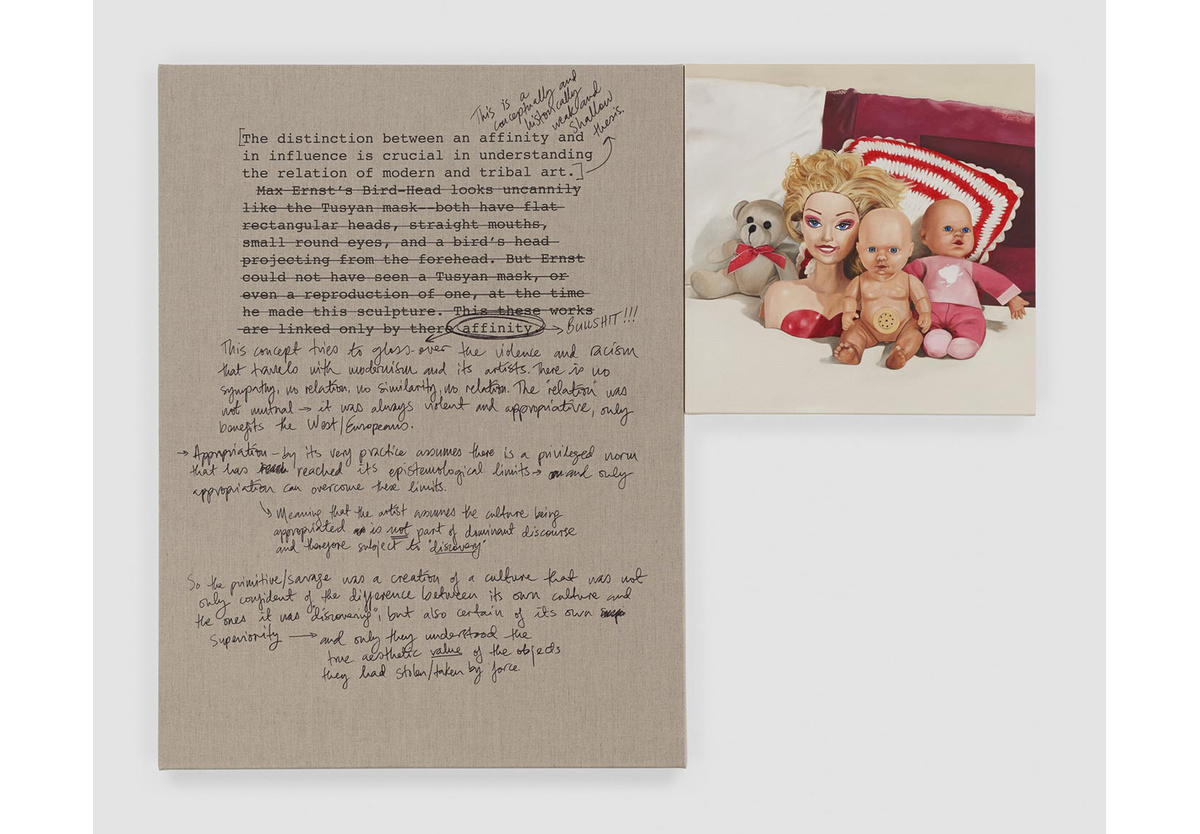 This is a
conceptually and
historically
weak and
shallow
thesis.
[The distinction between an affinity and
in influence is crucial in understanding
the relation of modern and tribal art.]
Max Ernst's Bird-Head looks uncannily
like the Tusyan mask--both have flat
rectangular heads, straight mouths,
small round eyes, and a bird's head
projecting from the forehead. But Ernst
could not have seen a Tusyan mask, or
even a reproduction of one, at the time
he made this sculpture. This these works
are linked only by there affinity. → BULLSHIT!!!
This concept tries to gloss-over the violence and racism
that travels with modernism and its artists. There is no
sympathy, no relation, no similarity, no relation. The "relation" was
not mutual → it was always violent and appropriative, only
benefits the West/Europeans.
→ Appropriation - by its very practice assumes there is a privileged norm
that has reached its epistemological limits → and only
appropriation can overcome these limits.
Meaning that the artist assumes the culture being
appropriated is not part of dominant discourse
and therefore subject to "discovery"
So the primitive/savage was a creation of a culture that was not
only confident of the difference between its own culture and
the ones it was "discovering", but also certain of its own
superiority → and only they understood the
true aesthetic value of the objects
they had stolen/taken by force